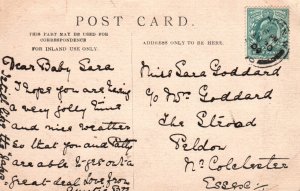 POST CARD.
THIS PART MAY BE USED FOR
CORRESPONDENCE
FOR INLAND USE ONLY.
ADDRESS ONLY TO BE HERE.
Dear Baby Sara
I hope you are having
a very jolly time
and nice weather
so that you and Betty
are able to get out a
great deal love from
Miss Sara Goddard
c/o Mrs Goddard
The Strood
Peldon
Nr Colchester
Essex